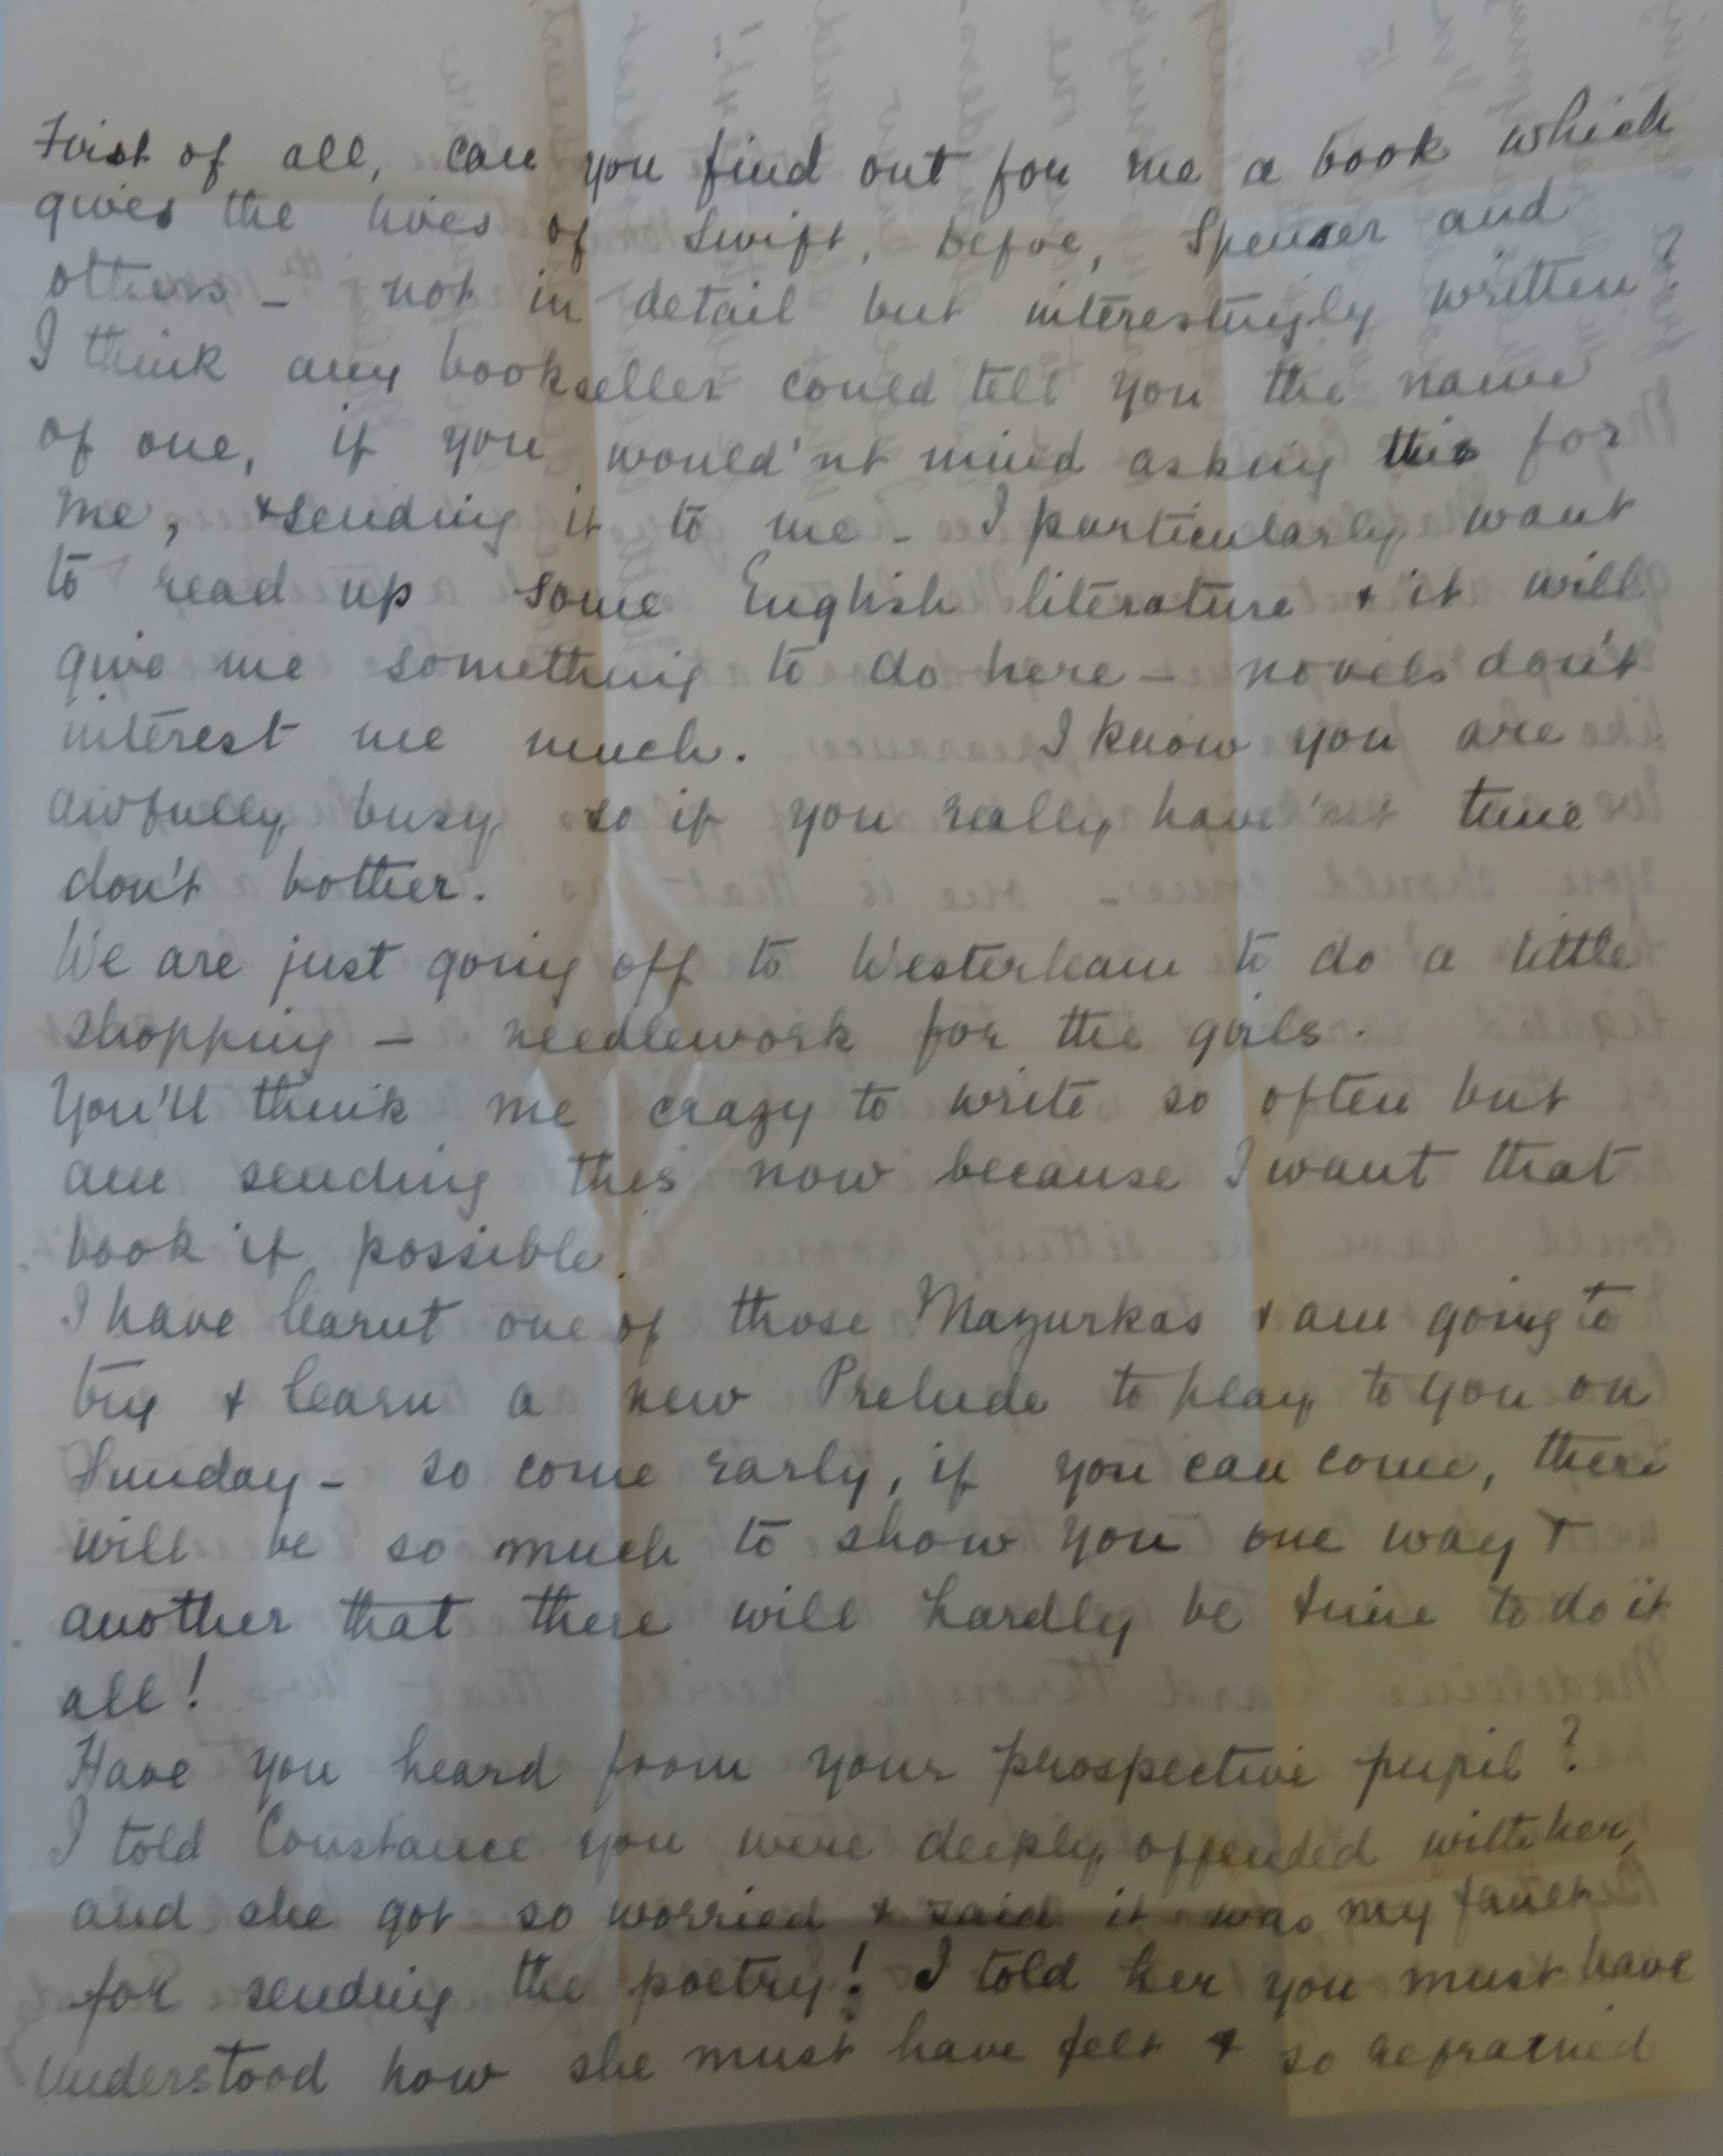 First of all, can you find out for me a book which
gives the lives of Swift, Defoe, Spenser and
others - not in detail but interestingly written?
I think any bookseller could tell you the name
of one, if you would'nt mind asking this for
me, & sending it to me - I particularly want
to read up some English literature & it will
give me something to do here - novels don't
interest me much. I know you are
awfully busy so if you really have'nt time
don't bother.
We are just going off to Westerham to do a little
shopping - needlework for the girls.
You'll think me crazy to write so often but
am sending this now because I want that
book if possible.
I have learnt one of those Mazurkas & am going to
try & learn a new Prelude to play to you on
Sunday - so come early, if you can come, there
will be so much to show you one way &
another that there will hardly be time to do it
all!
Have you heard from your prospective pupil?
I told Constance you were deeply offended with her,
and she got so worried & said it was my fault
for sending the poetry! I told her you must have
understood how she must have felt & so refrained